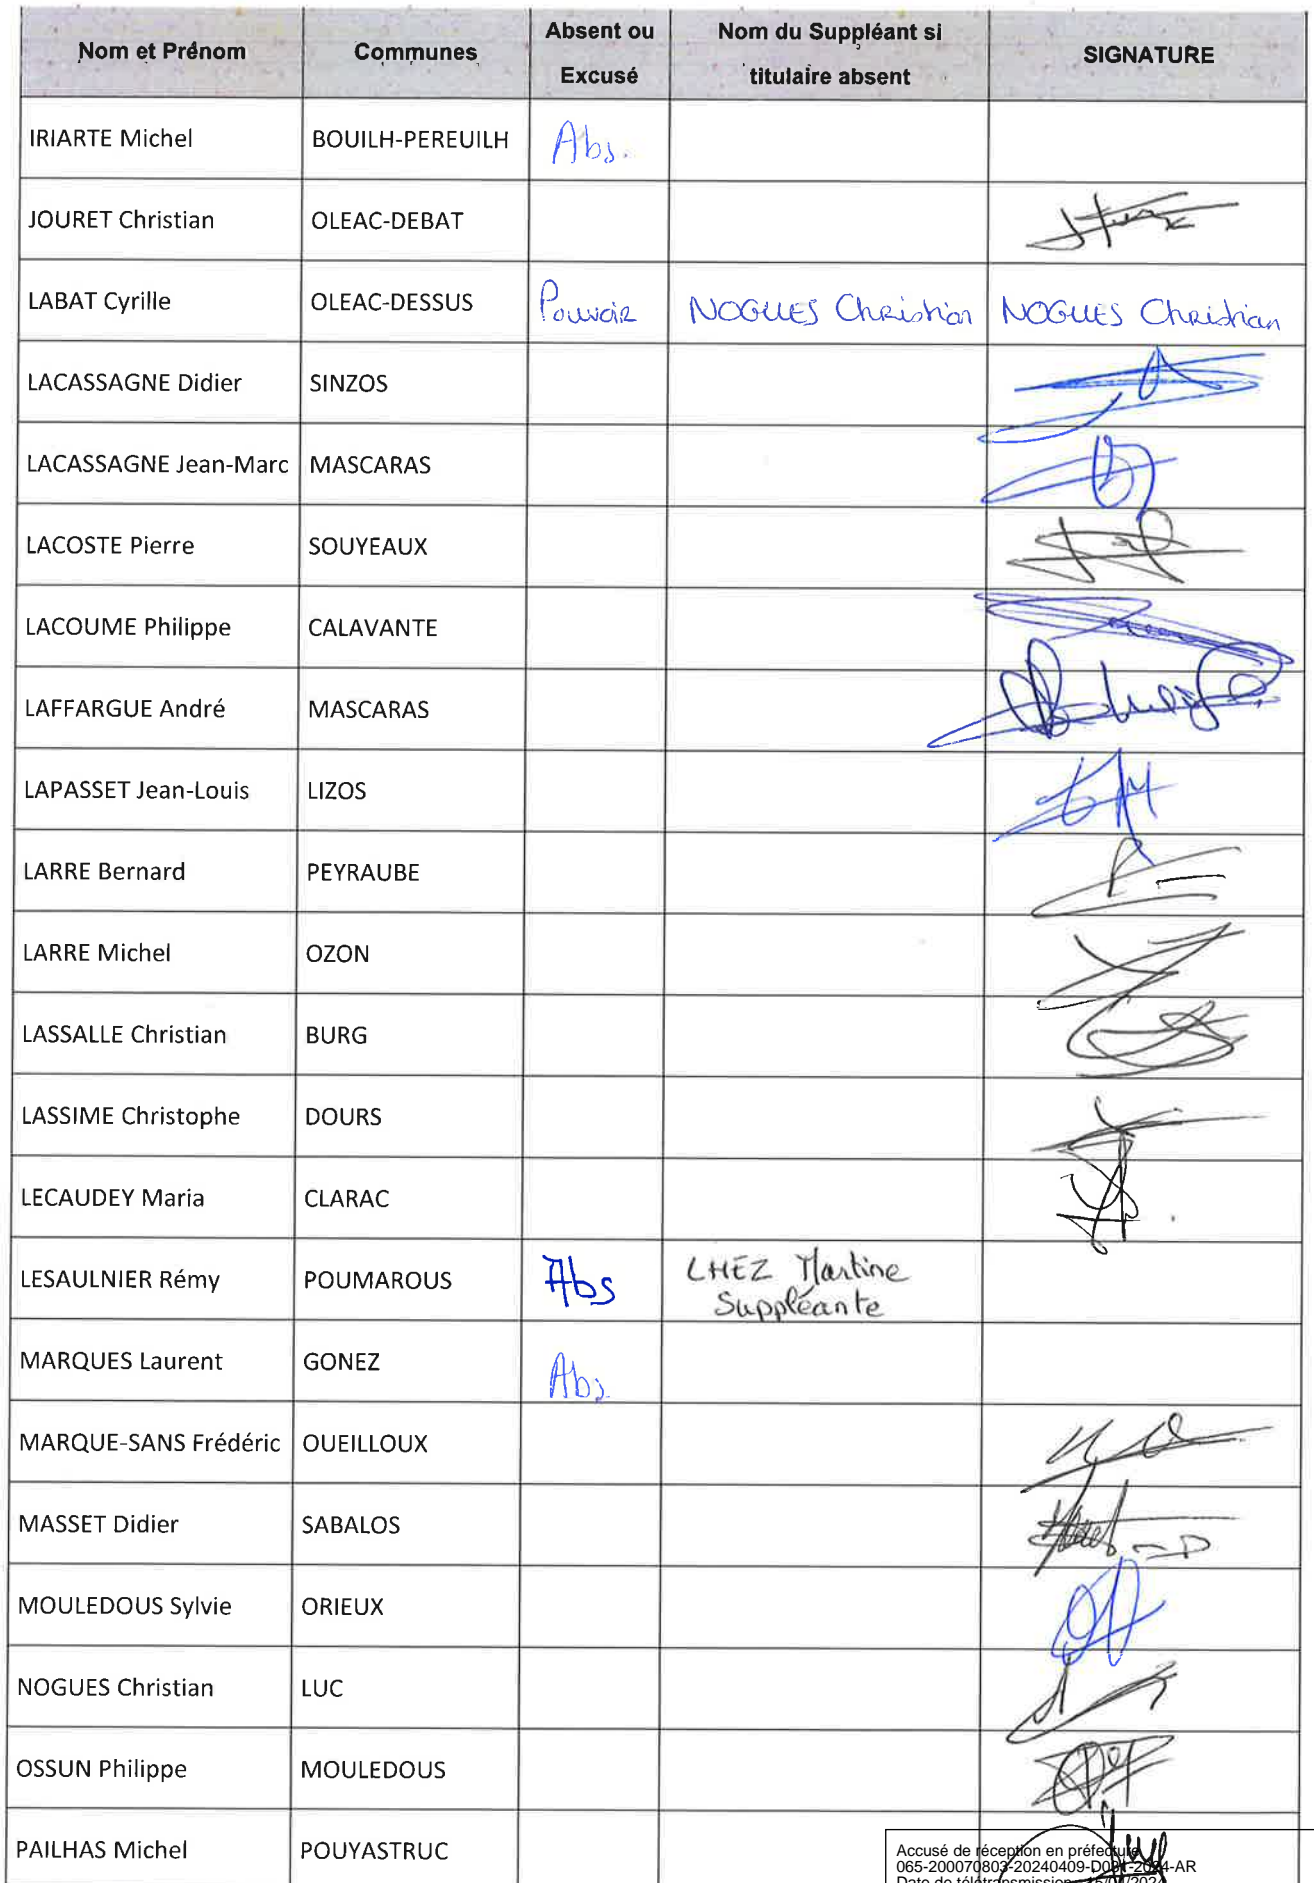 Nom et Prénom Communes Absent ou Excusé Nom du Suppléant si titulaire absent SIGNATURE
IRIARTE Michel BOUILH-PEREUILH Abs.
JOURET Christian OLEAC-DEBAT
LABAT Cyrille OLEAC-DESSUS Pouvoir NOGUES Christian NOGUES Christian
LACASSAGNE Didier SINZOS
LACASSAGNE Jean-Marc MASCARAS
LACOSTE Pierre SOUYEAUX
LACOUME Philippe CALAVANTE
LAFFARGUE André MASCARAS
LAPASSET Jean-Louis LIZOS
LARRE Bernard PEYRAUBE
LARRE Michel OZON
LASSALLE Christian BURG
LASSIME Christophe DOURS
LECAUDEY Maria CLARAC
LESAULNIER Rémy POUMAROUS Abs LHEZ Martine
Suppléante
MARQUES Laurent GONEZ Abs
MARQUE-SANS Frédéric OUEILLOUX
MASSET Didier SABALOS
MOULEDOUS Sylvie ORIEUX
NOGUES Christian LUC
OSSUN Philippe MOULEDOUS
PAILHAS Michel POUYASTRUC
Accusé de réception en préfecture
065-200070803-20240409-D031-2024-AR
Date de télétransmission